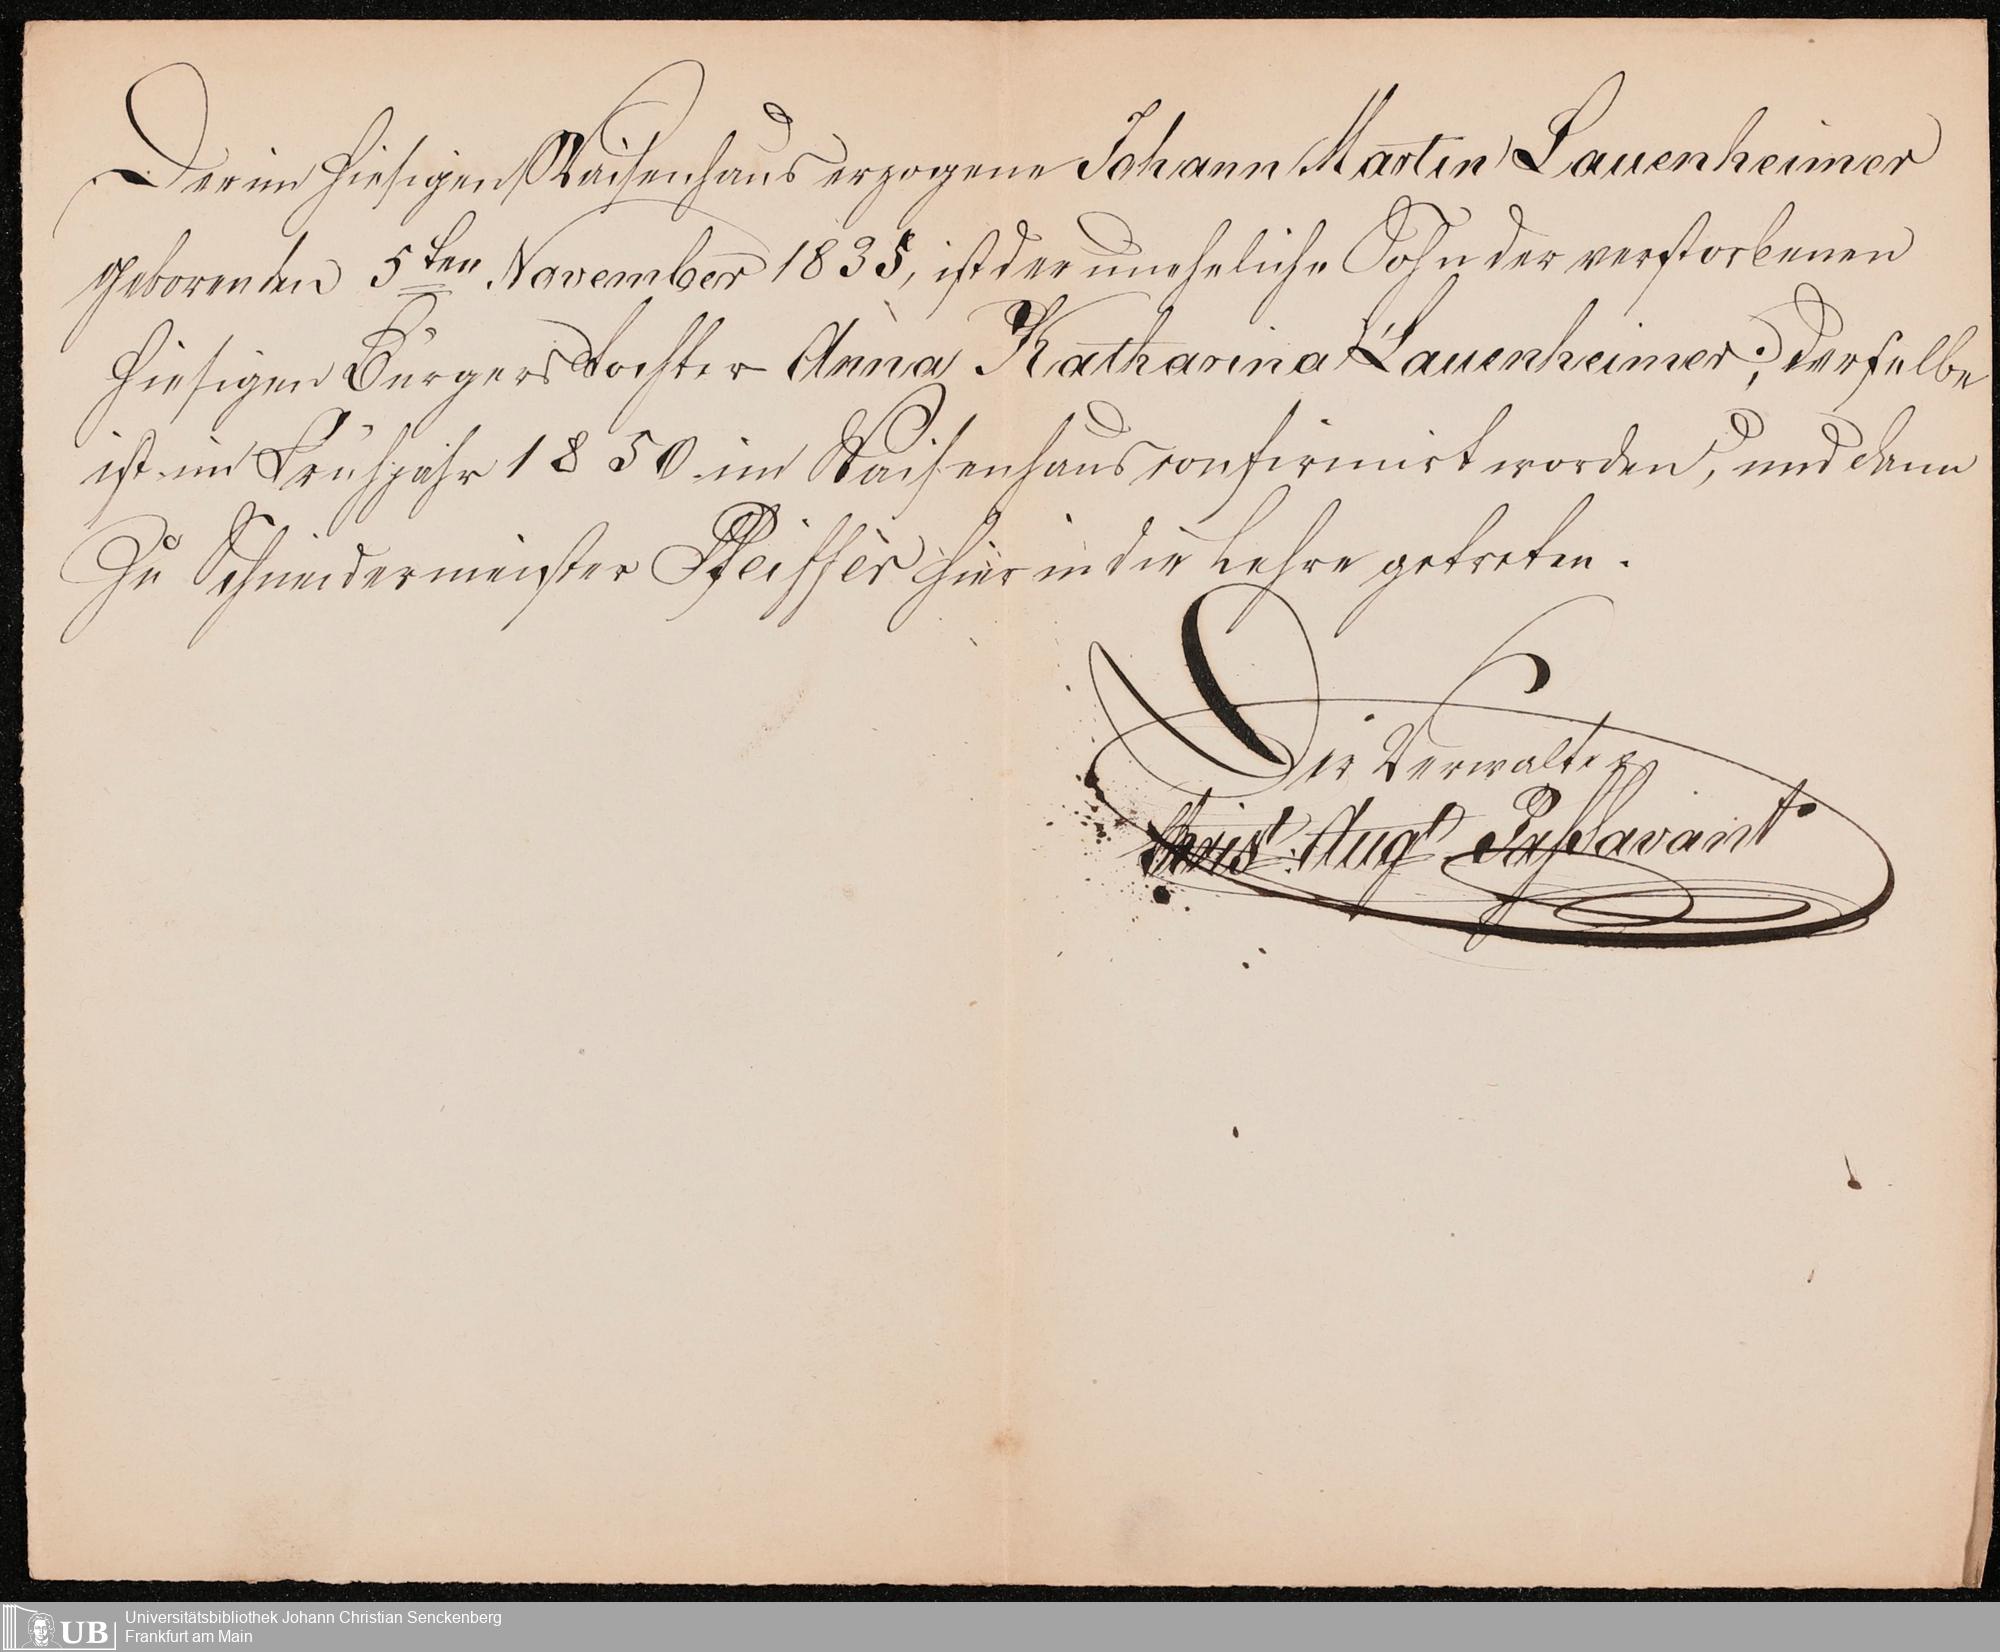 Der im hiesigen Waisenhaus erzogene Johann Martin Lauenheimer
geboren den 5ten November 1835, ist der uneheliche Sohn der verstorbenen
hiesigen Bürgerstochter Anna Katharina Lauenheimer; derselbe
ist im Frühjahr 1850 im Waisenhaus confirmirt worden, und dann
zu Schneidermeister Pfeiffer hier in die Lehre getreten.
Der Verwalter
Christ. Augt Passavant
UB Universitätsbibliothek Johann Christian Senckenberg
Frankfurt am Main